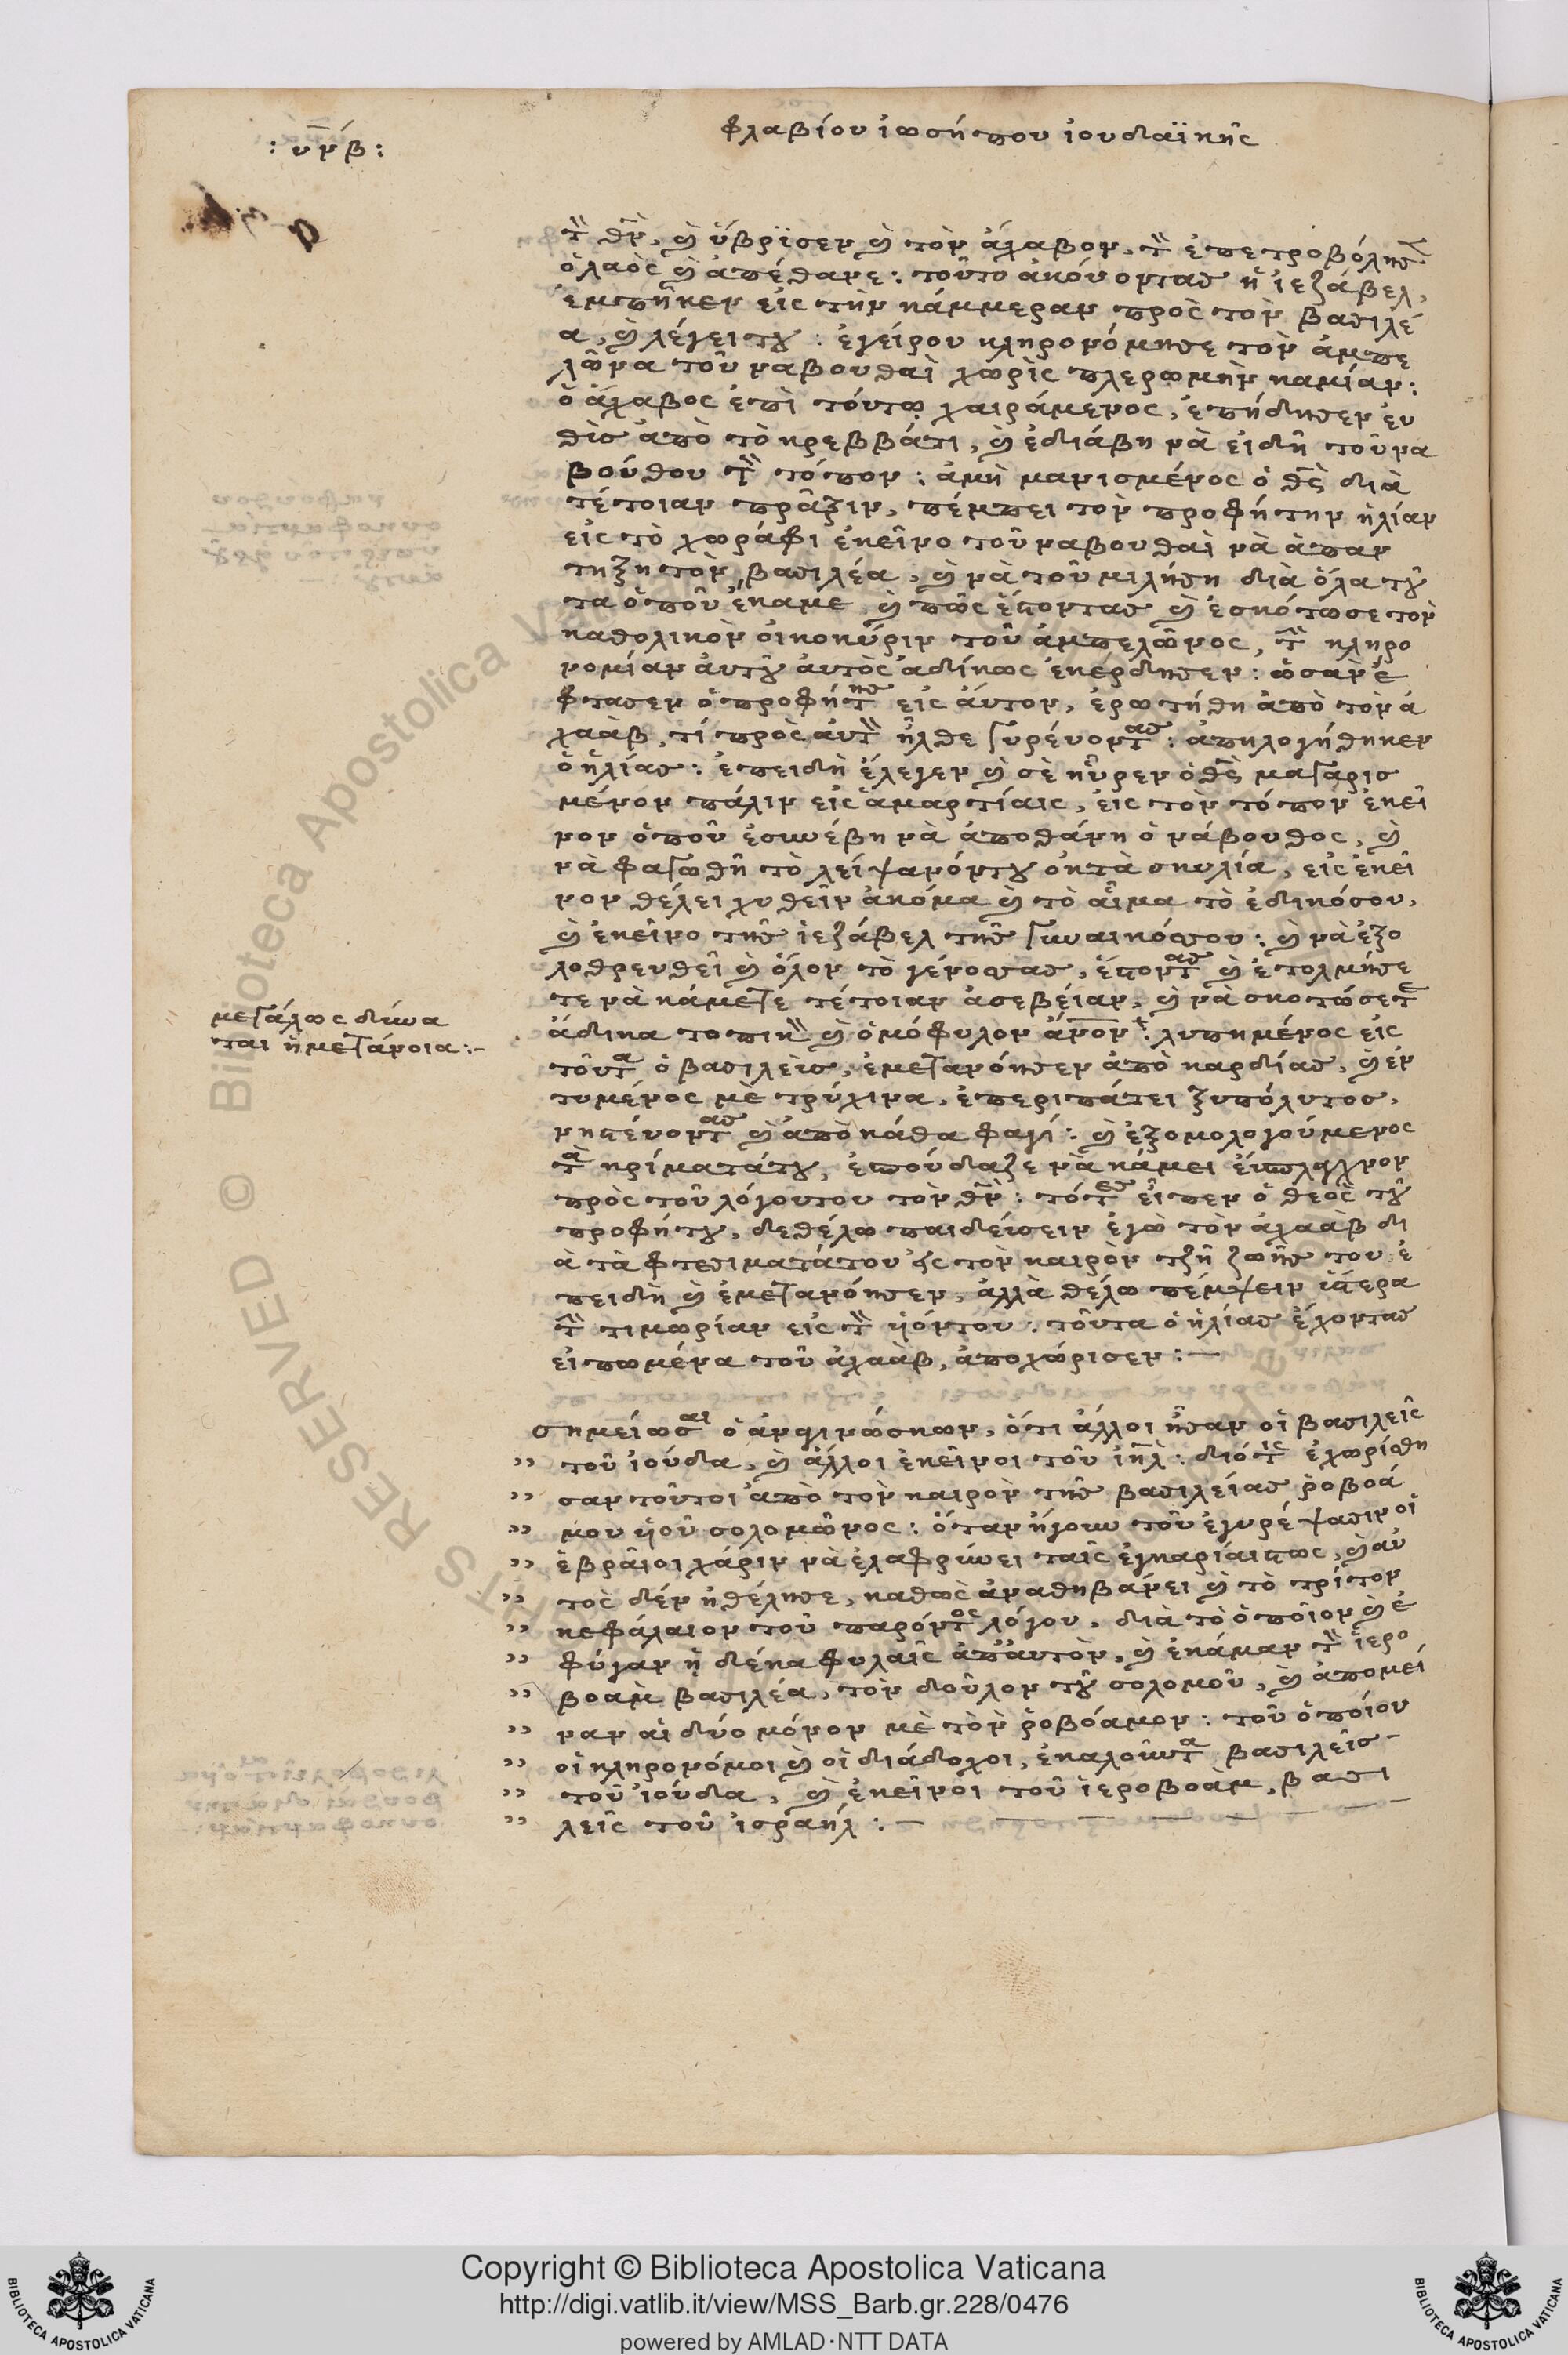 : υνβ :
φλαβίου ἰωσήπου ἰουδαϊκῆς
τὸν θν, καὶ ὕβρϊσεν καὶ τὸν ἄχαβον, τὸν ἐπετροβόλησεν
ὁ λαὸς καὶ ἀπέθανε : τοῦτο ἀκούοντας ἡ ἰεζάβελ,
ἔμπῆκεν εἰς τὴν κάμμεραν πρὸς τὸν βασιλέ
α, καὶ λέγει του : ἐγείρου κληρονόμησε τὸν ἀμπε
λῶνα τοῦ ναβουθαὶ χωρὶς πλερωμὴν καμίαν :
ὁ ἄχαβος ἐπὶ τούτω χαιράμενος, ἐπήδησεν ἐυ
θὺς ἀπὸ τὸ κρεββάτι, καὶ ἐδιάβη νὰ εἰδῆ τοῦ να
βούθου τὸν τόπον : ἀμὴ μανισμένος ὁ θς διὰ
τέτοιαν πρᾶξιν, πέμπει τὸν προφήτην ἡλίαν
εἰς τὸ χωράφι ἐκεῖνο τοῦ ναβουθαὶ νὰ ἀπαν
τήξη τὸν βασιλέα, καὶ νὰ τοῦ μιλήση διὰ ὅλα τοῦ
τα ὁποῦ ἔκαμε καὶ πῶς ἔστοντας καὶ ἐσκότωσε τὸν
καθολικὸν οἰκοκύριν τοῦ ἀμπελῶνος, τὴν κληρο
νομίαν ἀυτοῦ ἀυτὸς ἀδίκως ἐκέρδησεν : ὡσὰν ἔ
φτασεν ὁ προφήτης εἰς ἄυτον, ἐρωτήθη ἀπὸ τὸν ἀ
χαὰβ, τί πρὸς ἀυτὸν ἦλθε γυρέυοντας : ἀπηλογήθηκεν
ὁ ἡλίας : ἐπειδὴ ἔλεγεν καὶ σὲ ηὗρεν ὁ θς μαγαρισ
μένον πάλιν εἰς ἁμαρτίαις, εἰς τὸν τόπον ἐκεῖ
νον ὁποῦ ἐσυνέβη νὰ ἀποθάνη ὁ νάβουθος, καὶ
νὰ φαγωθῆ τὸ λείψανόντου ἐκ τὰ σκυλία, εἰς ἐκεῖ
νον θέλει χυθεῖν ἀκόμα καὶ τὸ αἷμα τὸ ἐδικόσου,
καὶ ἐκεῖνο τῆς ἰεζάβελ τῆς γυναικόσου : καὶ νὰ ἐξο
λοθρευθεῖ καὶ ὅλον τὸ γένοςσας, ἔστοντας καὶ ἐτολμήσε
τε νὰ κάμετε τέτοιαν ἀσεβείαν, καὶ νὰ σκοτώσετε
ἄδικα τοπικὸν καὶ ὁμόφυλον ἄνον : λυπημένος εἰς
τοῦτα ὁ βασιλεὺς, ἐμετανόησεν ἀπὸ καρδίας, καὶ ἐν
τυμένος μὲ τρύχινα, ἐπεριπάτει ξυπόλυτος,
νηστέυοντας καὶ ἀπὸ κάθα φαγί : καὶ ἐξομολογούμενος
τὰ κρίματάτου, ἐσπούδαζε νὰ κάμει ἔυσπλαχνον
πρὸς τοῦ λόγουτου τὸν θν : τότες εἶπεν ὁ θεὸς τοῦ
προφήτου, δεθέλω παιδέυσειν ἐγὼ τὸν ἀχαὰβ δι
ὰ τὰ φτεσιματάτου εἰς τὸν καιρὸν τζῆ ζωῆς του ἐ
πειδὴ καὶ ἐμετανόησεν, ἀλλὰ θέλω πέμψειν ὕστερα
τὴν τιμωρίαν εἰς τὸν ὑιόντου : τοῦτα ὁ ἡλίας ἔχοντας
εἰπωμένα τοῦ ἀχαὰβ, ἀποχώρισεν : —
μεγάλως δύνα
ται ἡ μετάνοια : -
σημείωσαι ὁ ἀναγινώσκων, ὅτι ἄλλοι ἦσαν οἱ βασιλεῖς
" τοῦ ἰούδα, καὶ ἄλλοι ἐκεῖνοι τοῦ ἰηλ : διότις ἐχωρίσθη
" σαν τοῦτοι ἀπὸ τὸν καιρὸν τῆς βασιλείας ῥοβοά
" μου ὑιοῦ σολομῶνος : ὅταν ἤγουν τοῦ ἐγυρέψασιν οἱ
" ἑβραῖοι χάριν νὰ ἐλαφρύνει ταῖς ἐγκαρίαιςτως, καὶ ἀυ
" τὸς δὲν ἠθέλησε, καθὼς ἀναθηβάνει καὶ τὸ τρίτον
" κεφάλαιον τοῦ παρόντος λόγου, διὰ τὸ ὁποῖον καὶ ἐ
" φύγαν ἡ δέκα φυλαῖς ἀπ' ἀυτὸν, καὶ ἐκάμαν τὸν ἱερο
" βοὰμ βασιλέα, τὸν δοῦλον τοῦ σολομοῦ, καὶ ἀπομεί
" ναν αἱ δύο μόνον μὲ τὸν ῥοβόαμον : τοῦ ὁποίου
" οἱ κληρονόμοι καὶ οἱ διάδοχοι, ἐκαλοῦντα βασιλεῖς
" τοῦ ἰούδα, καὶ ἐκεῖνοι τοῦ ἱεροβοὰμ, βασι
" λεῖς τοῦ ἰσραήλ : —
Copyright © Biblioteca Apostolica Vaticana
http://digi.vatlib.it/view/MSS_Barb.gr.228/0476
powered by AMLAD·NTT DATA